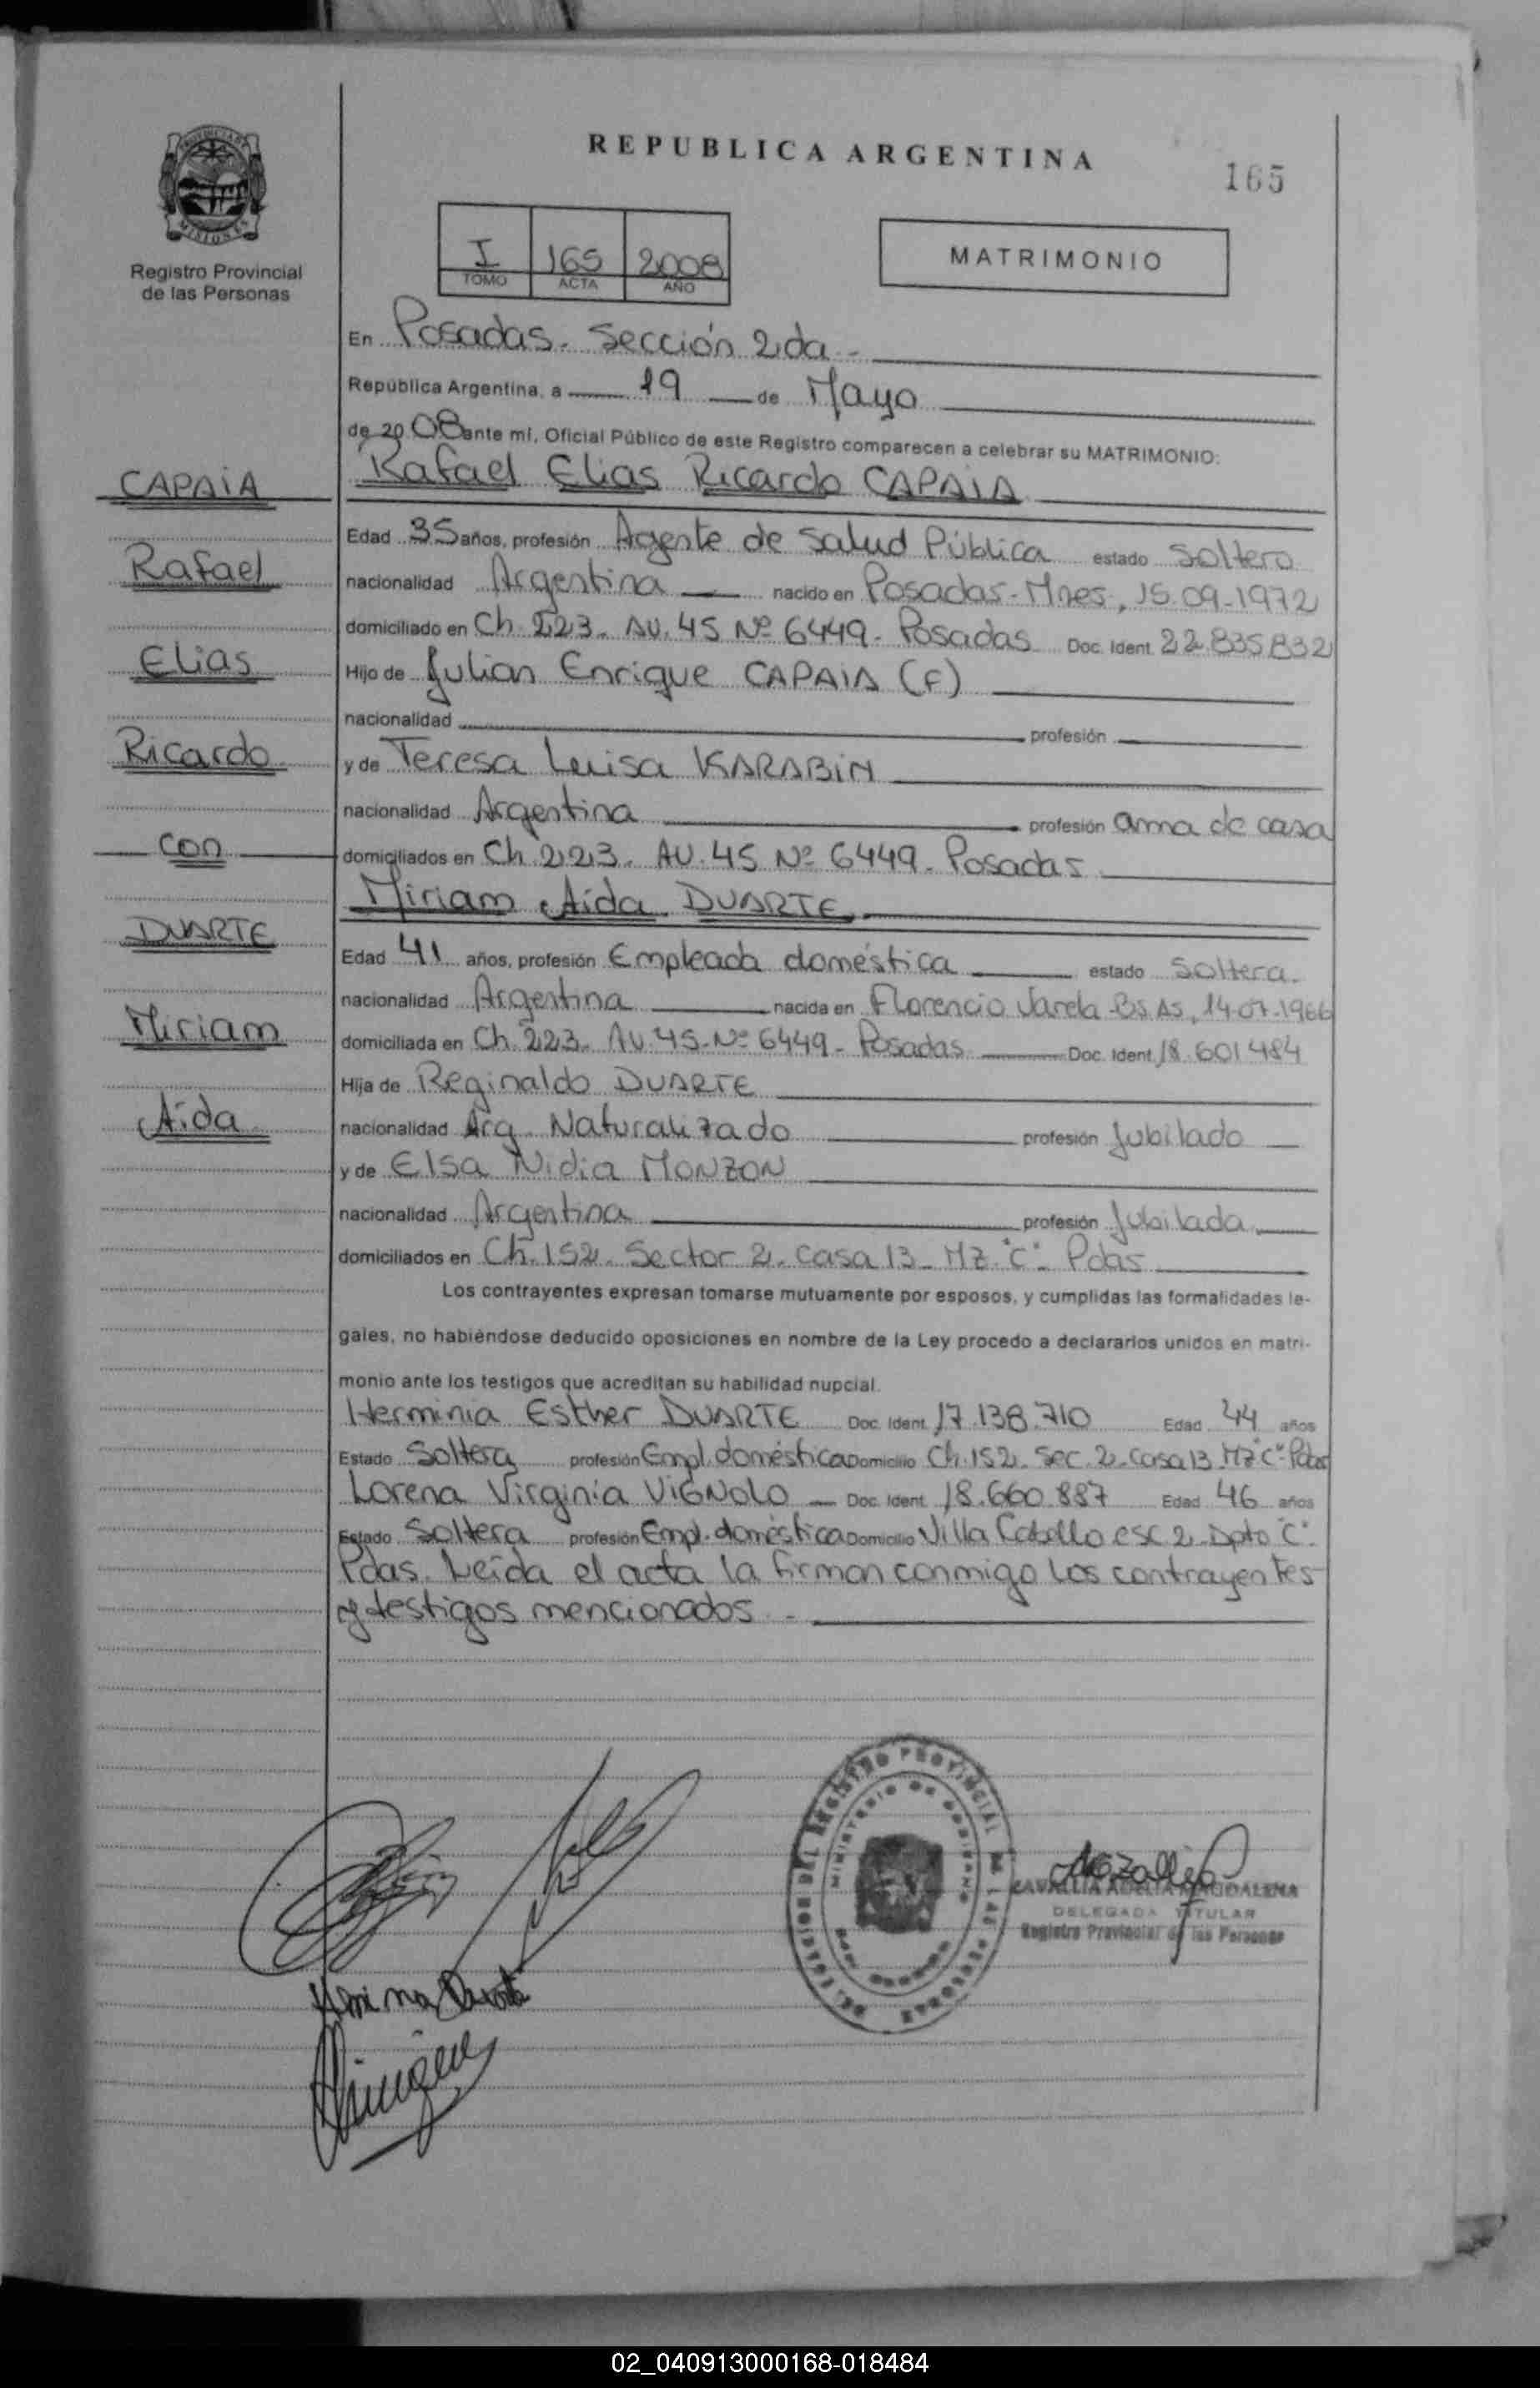 REPUBLICA ARGENTINA
165
PROVINCIA DE
MISIONES
Registro Provincial
de las Personas
I 165 2008
TOMO ACTA AÑO
MATRIMONIO
En Posadas - Sección 2da -
República Argentina, a 19 de Mayo
de 20 08 ante mí, Oficial Público de este Registro comparecen a celebrar su MATRIMONIO:
CAPAIA
Rafael Elias Ricardo CAPAIA
Edad 35 años, profesión Agente de Salud Pública estado Soltero
Rafael
nacionalidad Argentina nacido en Posadas - Mnes, 15.09-1972
domiciliado en Ch. 223. AV. 45 Nº 6449 - Posadas Doc. Ident. 22.835.832
Elias
Hijo de Julian Enrique CAPAIA (F)
nacionalidad profesión
Ricardo
y de Teresa Luisa KARABIN
nacionalidad Argentina profesión ama de casa
con
domiciliados en Ch. 223. AV. 45 Nº 6449 - Posadas
Miriam Aída DUARTE
DUARTE
Edad 41 años, profesión Empleada doméstica estado Soltera.
nacionalidad Argentina nacida en Florencio Varela - Bs As, 14-07-1966
Miriam
domiciliada en Ch. 223. AV. 45 - Nº 6449 - Posadas Doc. Ident. 18.601484
Hija de Reginaldo DUARTE
Aída
nacionalidad Arg. Naturalizado profesión Jubilado
y de Elsa Nidia MONZON
nacionalidad Argentina profesión Jubilada
domiciliados en Ch. 152. Sector 2. casa 13 - MZ. "C". Pdas
Los contrayentes expresan tomarse mutuamente por esposos, y cumplidas las formalidades le-
gales, no habiéndose deducido oposiciones en nombre de la Ley procedo a declararlos unidos en matri-
monio ante los testigos que acreditan su habilidad nupcial.
Herminia Esther DUARTE Doc. Ident. 17.138.710 Edad 44 años
Estado Soltera profesión Empl. doméstica Domicilio Ch. 152. Sec. 2. Casa 13 MZ "C" - Pdas
Lorena Virginia VIGNOLO Doc. Ident. 18.660.887 Edad 46 años
Estado Soltera profesión Empl. doméstica Domicilio Villa Cabello esc 2. Dpto "C".
Pdas. Leída el acta la firman conmigo los contrayentes
y testigos mencionados -
REGISTRO PROVINCIAL DE LAS PERSONAS
MINISTERIO DE GOBIERNO
ZAVALLIA ADELIA MAGDALENA
DELEGADA TITULAR
Registro Provincial de las Personas
02_040913000168-018484